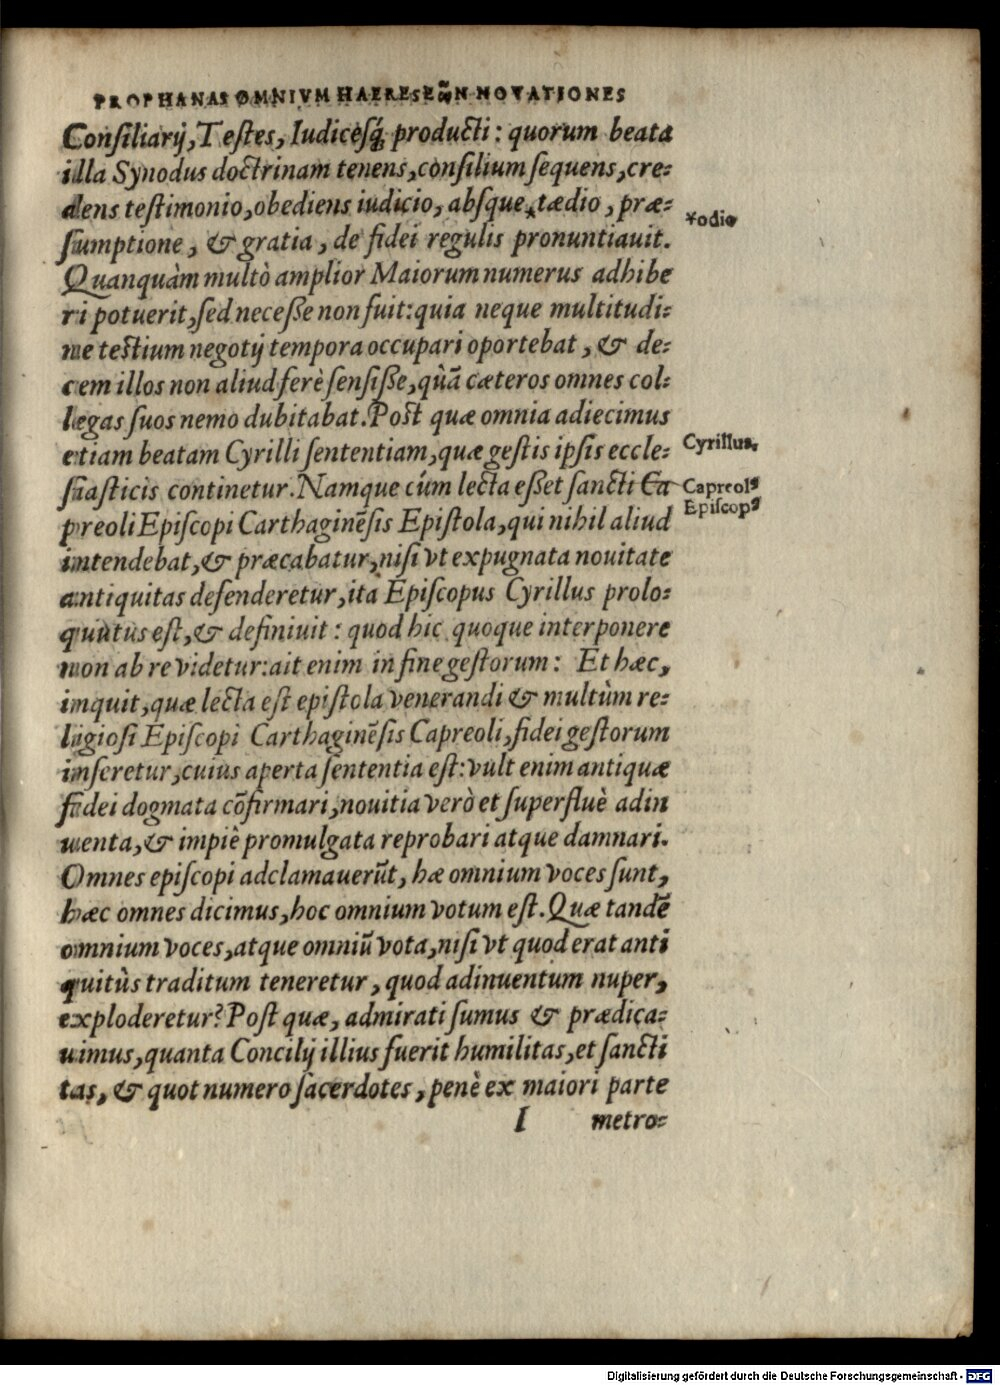 PROPHANAS OMNIVM HAERESEωN NOVATIONES
Consiliarij, Testes, Iudicesq́; producti: quorum beata
illa Synodus doctrinam tenens, consilium sequens, cre-
dens testimonio, obediens iudicio, absque * tædio, præ-
sumptione, & gratia, de fidei regulis pronuntiauit.
Quanquàm multò amplior Maiorum numerus adhibe
ri potuerit, sed necesse non fuit: quia neque multitudi-
ne testium negotij tempora occupari oportebat, & de-
cem illos non aliud ferè sensisse, quã cæteros omnes col-
legas suos nemo dubitabat. Post quæ omnia adiecimus
etiam beatam Cyrilli sententiam, quæ gestis ipsis eccle-
siasticis continetur. Namque cúm lecta esset sancti Ca
preoli Episcopi Carthaginẽsis Epistola, qui nihil aliud
intendebat, & præcabatur, nisi vt expugnata nouitate
antiquitas defenderetur, ita Episcopus Cyrillus prolo-
quutus est, & definiuit: quod hic quoque interponere
non ab re videtur: ait enim in fine gestorum: Et hæc,
inquit, quæ lecta est epistola venerandi & multùm re-
ligiosi Episcopi Carthaginẽsis Capreoli, fidei gestorum
inseretur, cuius aperta sententia est: vult enim antiquæ
fidei dogmata cõfirmari, nouitia verò et superfluè adin
uenta, & impiè promulgata reprobari atque damnari.
Omnes episcopi adclamauerũt, hæ omnium voces sunt,
hæc omnes dicimus, hoc omnium votum est. Quæ tandẽ
omnium voces, atque omniũ vota, nisi vt quod erat anti
quitùs traditum teneretur, quod adinuentum nuper,
exploderetur? Post quæ, admirati sumus & prædica-
uimus, quanta Concilij illius fuerit humilitas, et sancti
tas, & quot numero sacerdotes, penè ex maiori parte
I metro-
*odio
Cyrillus,
Capreolꝰ
Episcopꝰ
Digitalisierung gefördert durch die Deutsche Forschungsgemeinschaft - DFG